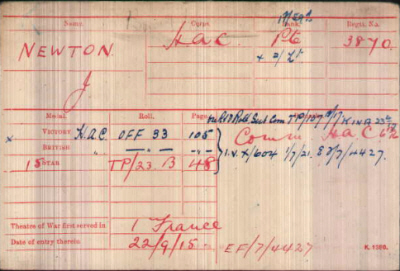 Name. Corps. Rank. Regtl. No.
NEWTON H.A.C. Pte 3870.
x 2/Lt
J
Medal. Roll. Page
VICTORY H.A.C. OFF 33 105
BRITISH " —"— —"—
15 STAR TP/23 B 48
Comm H A C
I.V. X/604 1/7/21. E
Theatre of War first served in 1 France
Date of entry therein 22/9/15 EF/7/4427
K. 1380.